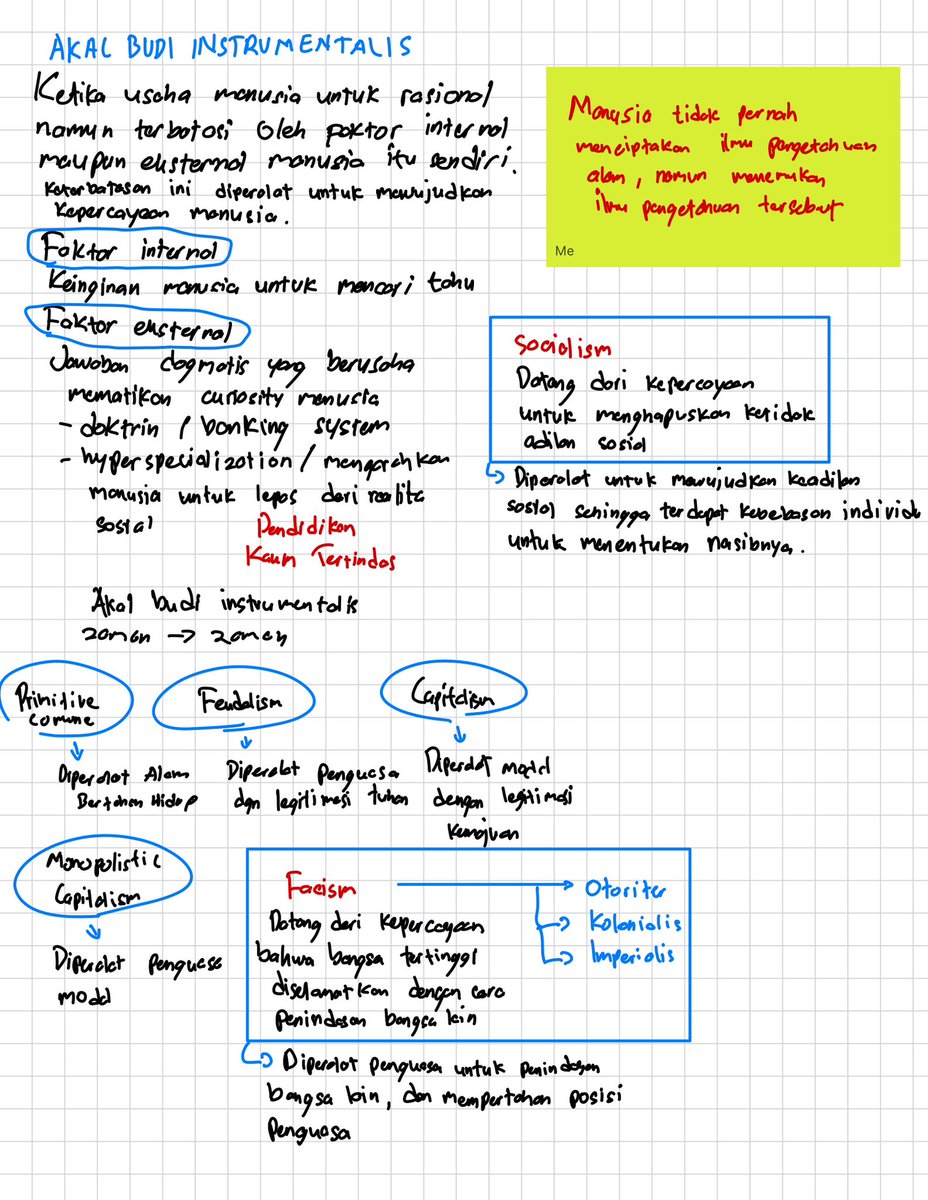 AKAL BUDI INSTRUMENTALIS
Ketika usaha manusia untuk rasional
namun terbatasi oleh faktor internal
maupun eksternal manusia itu sendiri.
Keterbatasan ini diperalat untuk mewujudkan
kepercayaan manusia.
Faktor internal
Keinginan manusia untuk mencari tahu
Faktor eksternal
Jawaban dogmatis yang berusaha
mematikan curiosity manusia
- doktrin / banking system
- hyperspecialization / mengarahkan
manusia untuk lepas dari realita
sosial
Pendidikan
Kaum Tertindas
Manusia tidak pernah
menciptakan ilmu pengetahuan
alam, namun menemukan
ilmu pengetahuan tersebut
Me
Socialism
Datang dari kepercayaan
untuk menghapuskan ketidak
adilan sosial
Diperalat untuk mewujudkan keadilan
sosial sehingga terdapat kebebasan individu
untuk menentukan nasibnya.
Akal budi instrumentalis
zaman → zaman
Primitive
comune
Diperalat Alam
Bertahan Hidup
Feudalism
Diperalat penguasa
dgn legitimasi tuhan
Capitalism
Diperalat modal
dengan legitimasi
kemajuan
Monopolistic
Capitalism
Diperalat penguasa
modal
Facism
Datang dari kepercayaan
bahwa bangsa tertinggi
diselamatkan dengan cara
penindasan bangsa lain
Otoriter
Kolonialis
Imperialis
Diperalat penguasa untuk penindasan
bangsa lain, dan mempertahan posisi
penguasa